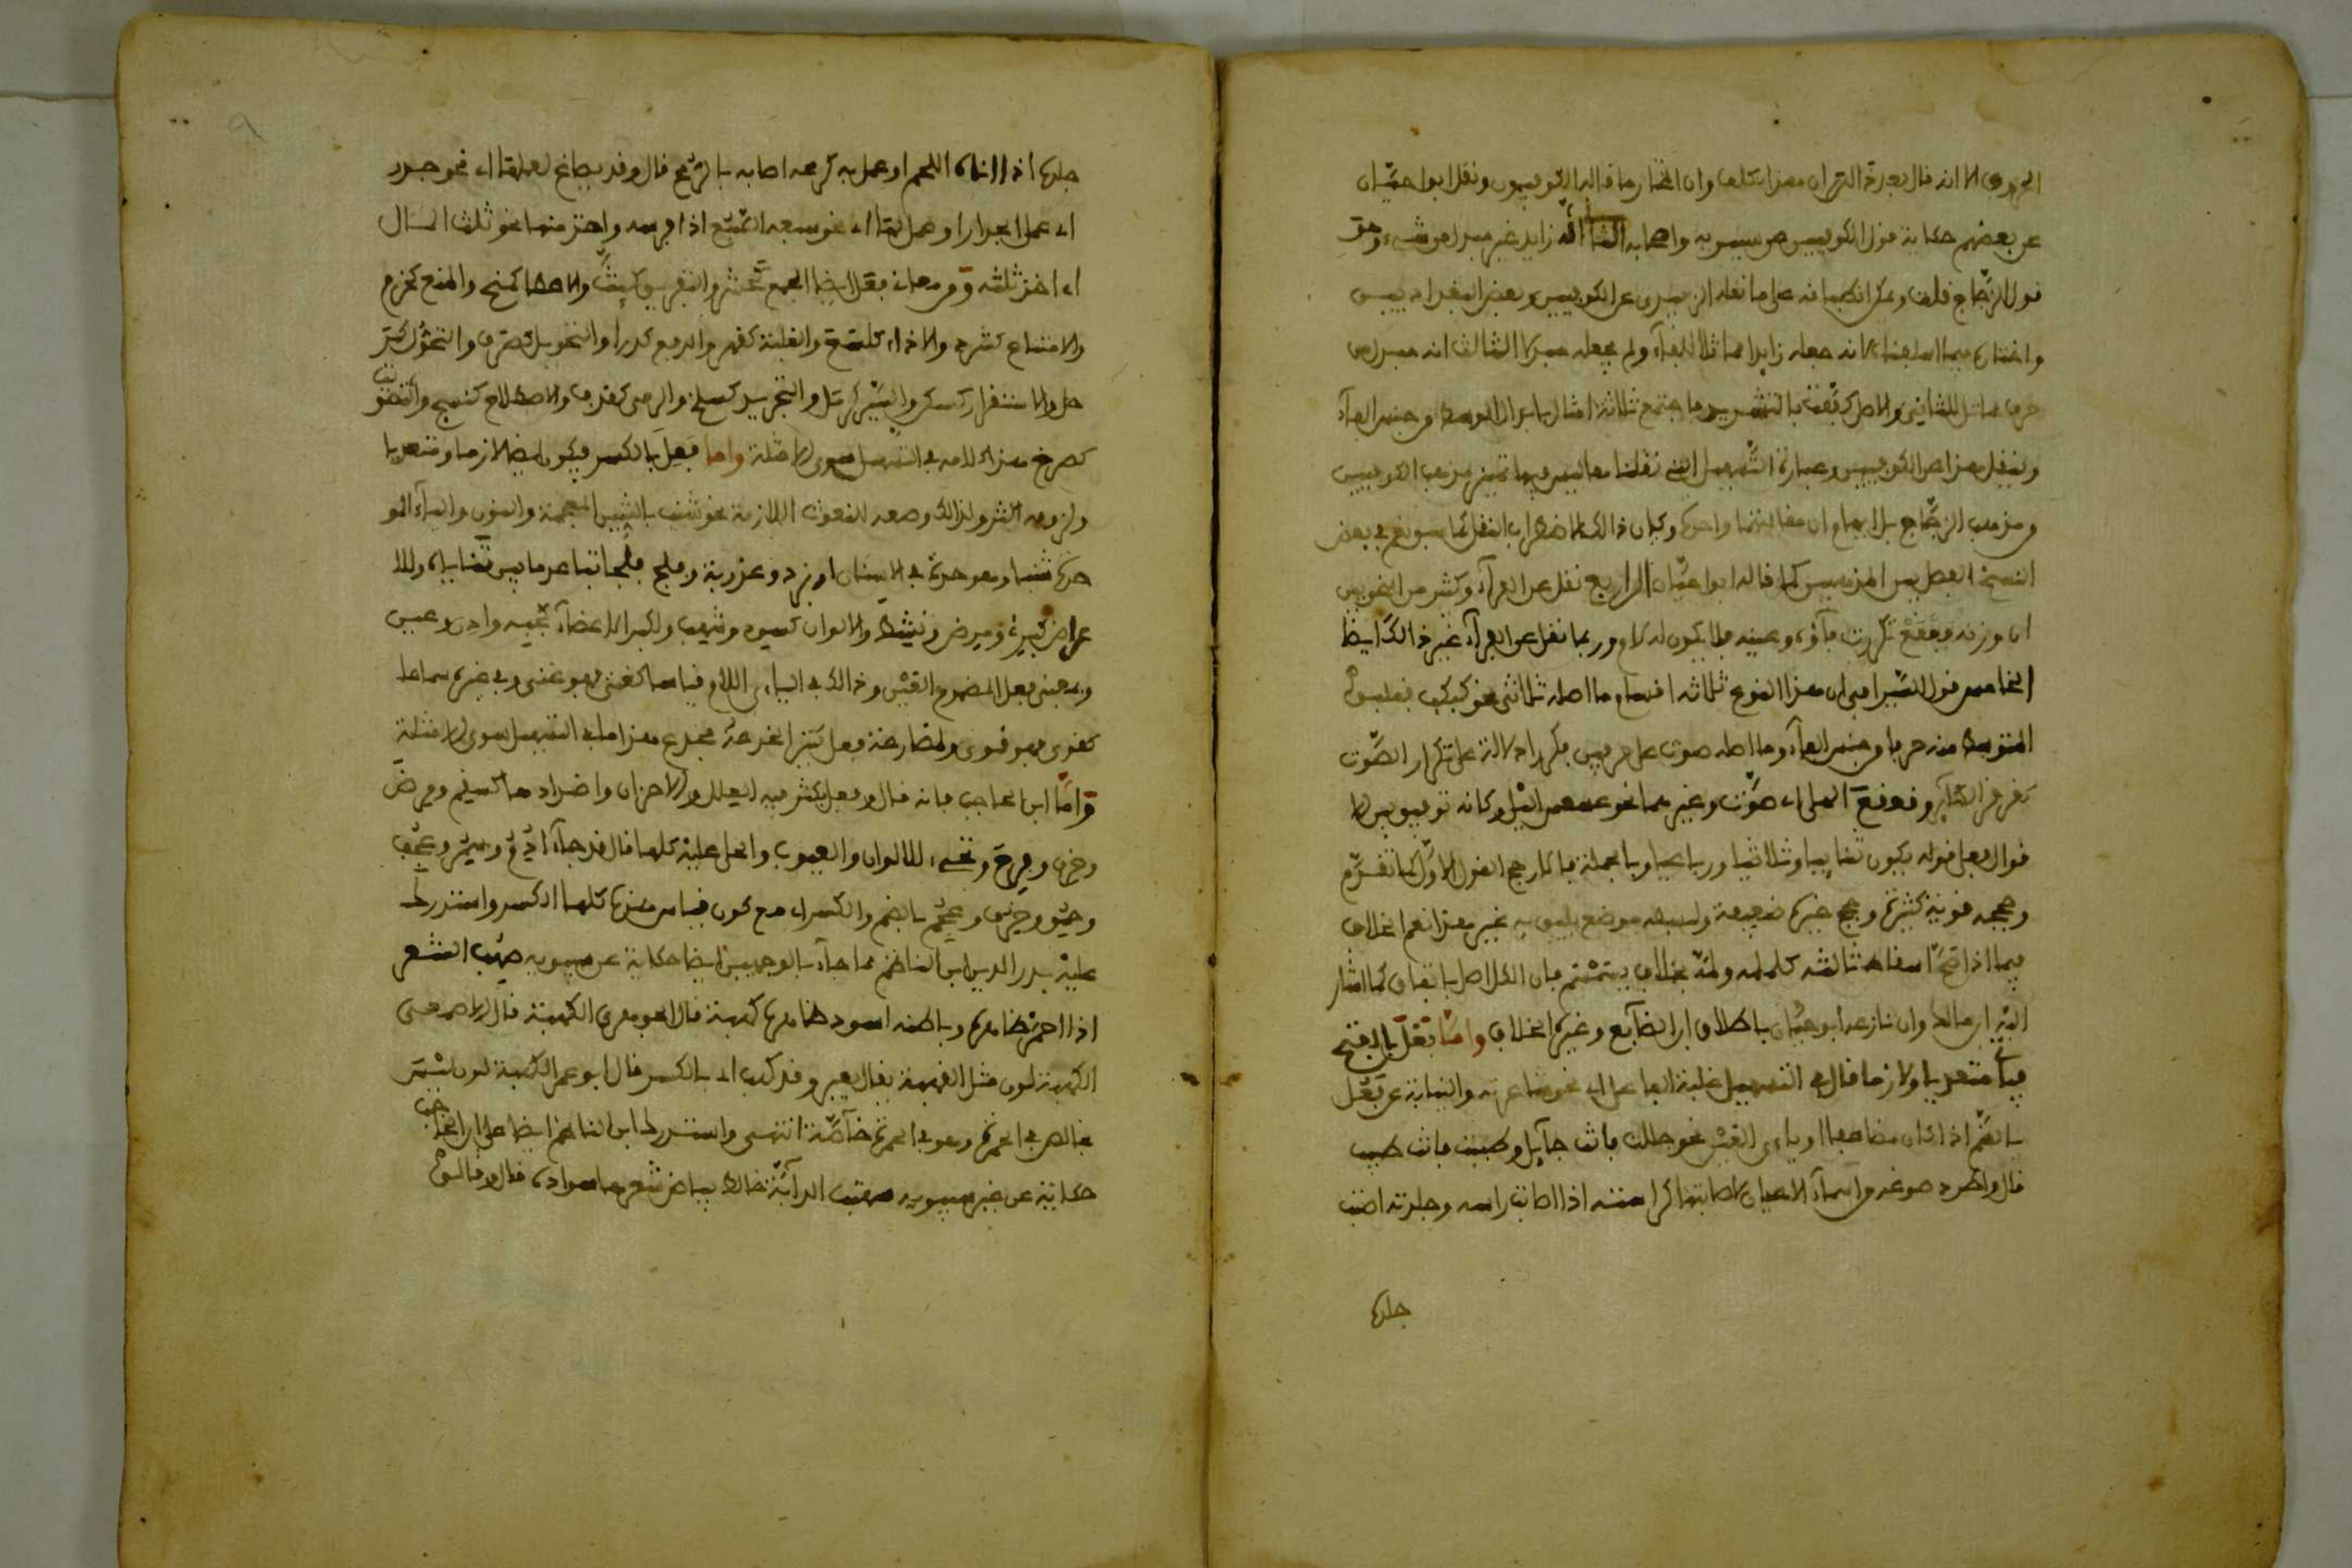 الحروف الا انه قال بعد هذا القران هذا تكلف وان المختار ما قاله الكوفيون ونقل ابوا حيّان
عن بعضهم حكاية قول الكوفيين عن سيبويه واصحابه الثالث زايد غير مبدل من شيء وهو
قول الزجّاج قلت ويمكن انطباقه على ما نقله الزبيدي عن الكوفيين وبعض البغداديين
واختاره فيما اسلفناه لانه جعله زايدا مماثلا للفاء ولم يجعله مبدلا الثالث انه مبدل من
حرف مماثل للثاني والاصل كفّف بالتشديد فاجتمع ثلاثة امثال فابدل الوسط من جنس الفاء
ونقل هذا عن الكوفيين وعبارة التّسهيل التي نقلنا معاليس فيها تمييز مذهب الكوفيين
من مذهب الزجّاج بل ايهام ان مقالتهما واحدة وكان ذالك لاضطراب النقل كما سيوقع في بعض
النسخ الفصل بين المذهبين كما قاله ابوا حيّان الرابع نقل عن الفراء وكثير من النحويين
ان وزنه فعفع تكررت فاؤه وعينه فلا يكون له لام وربما نقل عن الفراء غير ذالك ايضا
الخامس قول السّيرافي ان هذا النوع ثلاثة اقسام ما اصله ثلاثي نحو كبكب فقلبوا
المتوسط منه حرفا من جنس الفاء وما اصله صوت على حرفين فكرر دلالة على تكرار الصّوت
كقرقر الطاير وقعقع الحلى اي صوّت وغيرهما نحو عسعس الليل وكانه توفيق بين الا
قوال فعلى قوله يكون ثنائيا وثلاثيا ورباعيا وبالجملة فالارجح القول الاوّل كما تقدّم
وحججه قوية كثيرة وحجج غيره ضعيفة ولبسطه موضع يليق به غير هذا نعم الخلاف
فيما اذا صحّ اسقاط ثالثه كلملمه ولمّه بخلاف سمسم فان الكل اصل باتفاق كما اشار
اليه ابن مالك وان نازعه ابو حيّان باطلاق ابن الضايع وغيره الخلاف واما فعَل بالفتح
فيأتي متعديا ولازما قال في التسهيل غلبة الفاعل اي نحو شاعرته والنيابة عن فعُل
بالضّم اذا كان مضاعفا او ياءي العين نحو جللت فانت جليل وطبت فانت طيب
قال واطرد صوغه من اسماء الاعيان لاصابتها كراسته اذا اصاب راسه وجلدته اصبت
جلده
جلده اذ انالته اللحم او عمل به كرمحه اصابه بالرّمح قال وقد يصاغ لعملها اي نحو جدر
اي عمل الجدار او عمل لها اي نحو سبعه السّبع اذا افرسه واخذ منها نحو ثلث المال
اي اخذ ثلثه ومن معاني فعل ايضا الجمع كحشر والتفريق كبثّ والاعطا كمنح والمنع كحرم
والامتناع كشرد والاذاء كلسع والغلبة كقهر والدفع كدرأ والتحويل كصرف والتحوّل كر
حل والاستقرار كسكن والسّير كرمل والتجريد كسلخ والرمي كقذف والاصلاح كنسج والتصويت
كصرخ هذا كلامه في التسهيل سوى الامثلة واما فعِل بالكسر فيكون ايضا لازما ومتعديا
ولزومه اكثر ولذالك وضعه للنعوت اللازمة نحو شنب بالشين المعجمة والنون والباء الموحدة
حدة شنبا وهو حدة في الاسنان او برد وعذوبة وفلج فلجا تباعد ما بين ثناياه وللا
عراض كبرئ ومرض ونشط والالوان كسود وشهب ولكبر الاعضاء كجبه واذن وعين
وبمعنى فعل المضموم العين وذالك في الياءي اللام قياسا كغنى فهو غني وفي غيره سماعا
كقوي فهو قوي ولمطاوعة فعل كثيرا نحو جدعه فجدع هذا ما في التسهيل سوى الامثلة
وامّا ابن الحاجب فانه قال وفعل يكثر فيه العلل والاحزان واضدادها كسقم ومرض
وحزن وفرح وتجيء الالوان والعيوب والحلى عليه كلها قال وقد جاء ادُم وسمُر وعجُف
وحمُق وخرُق وعجُم بالضم والكسر اي مع كون قياس هذا كلها الكسر واستدرك
عليه بدر الدين ابن الناظم مما جاء بالوجهين ايضا حكاية عن سيبويه صهب الشعر
اذا احمر ظاهره وباطنه اسود ظاهره كهبة قال الجوهري الكهبة قال الاصمعي
الكهبة لون مثل القهبة يقال بعير وقد كهب اي بالكسر قال ابو عمر الكهبة لون ليس
بخالص في الحمرة وهو في الحمرة خاصّة انتهى واستدرك ابن الناظم ايضا على ابن الحاجب
حكاية عن غير سيبويه شهبت الدابّة خالط بياض شعرها سواده قال وقالوا